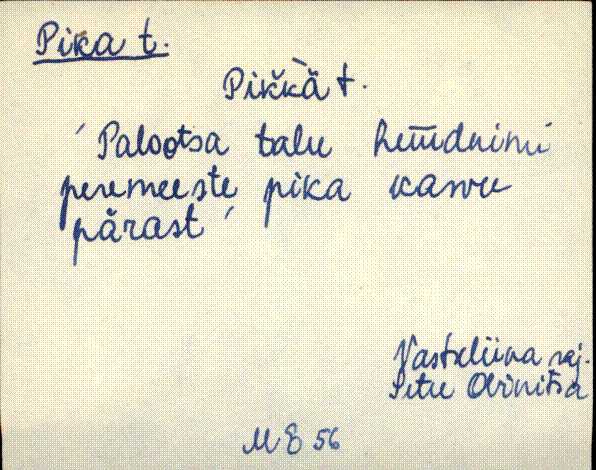 Pika t.
Pikkä t.
'Palootsa talu hüüdnimi
peremeeste pika kasvu
pärast'
Vastseliina raj.
Setu Obinitsa
M E 56